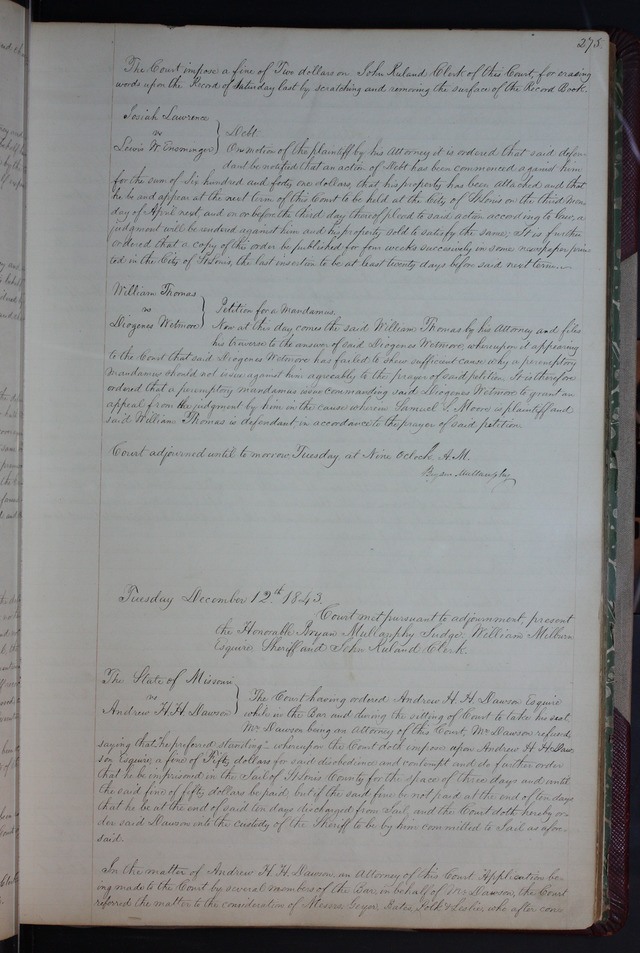 275.
The Court impose a fine of Two dollars on John Ruland Clerk of this Court, for erasing
words upon the Record of Saturday last by scratching and removing the surface of the Record Book.
Josiah Lawrence
vs
Lewis W. Ensminger
Debt.
On motion of the plaintiff by his Attorney it is ordered that said defen-
dant be notified that an action of Debt has been commenced against him
for the sum of Six hundred and forty one dollars, that his property has been attached and that
he be and appear at the next term of this Court to be held at the City of St Louis on the third Mon
day of April next, and on or before the third day thereof plead to said action according to law, a
judgment will be rendered against him and his property sold to satisfy the same; It is further
ordered that a copy of this order be published for four weeks successively in some newspaper prin
ted in the City of St Louis, the last insertion to be at least twenty days before said next term.
William Thomas
vs
Diogenes Wetmore
Petition for a Mandamus.
Now at this day comes the said William Thomas by his Attorney and files
his traverse to the answer of said Diogenes Wetmore, whereupon it appearing
to the Court that said Diogenes Wetmore has failed to shew sufficient cause why a peremptory
mandamus should not issue against him agreeably to the prayer of said petition. It is therefore
ordered that a peremptory mandamus issue commanding said Diogenes Wetmore to grant an
appeal from the judgment by him in the cause wherein Samuel S. Moore is plaintiff and
said William Thomas is defendant, in accordance to the prayer of said petition.
Court adjourned until to morrow, Tuesday, at Nine Oclock A.M.
Bryan Mullanphy
Tuesday December 12th 1843.
Court met pursuant to adjournment, present
the Honorable Bryan Mullanphy Judge, William Milburn
Esquire Sheriff and John Ruland Clerk.
The State of Missouri
vs
Andrew H. H. Dawson
The Court having ordered Andrew H. H. Dawson Esquire
while in the Bar and during the sitting of Court to take his seat,
Mr Dawson being an Attorney of this Court, Mr Dawson refused
saying that "he preferred standing": whereupon the Court doth impose upon Andrew H. H. Daw
son Esquire, a fine of Fifty dollars for said disobedience and contempt and do further order
that he be imprisoned in the Jail of St Louis County for the space of three days and until
the said fine of fifty dollars be paid, but if the said fine be not paid at the end of ten days
that he be at the end of said ten days discharged from Jail, and the Court doth hereby or-
der said Dawson into the custody of the Sheriff to be by him committed to Jail as afore-
said.
In the matter of Andrew H. H. Dawson, an Attorney of this Court. Application be-
ing made to the Court by several members of the Bar, in behalf of Mr Dawson, the Court
referred the matter to the consideration of Messrs Geyer, Bates, Polk & Leslie, who after con